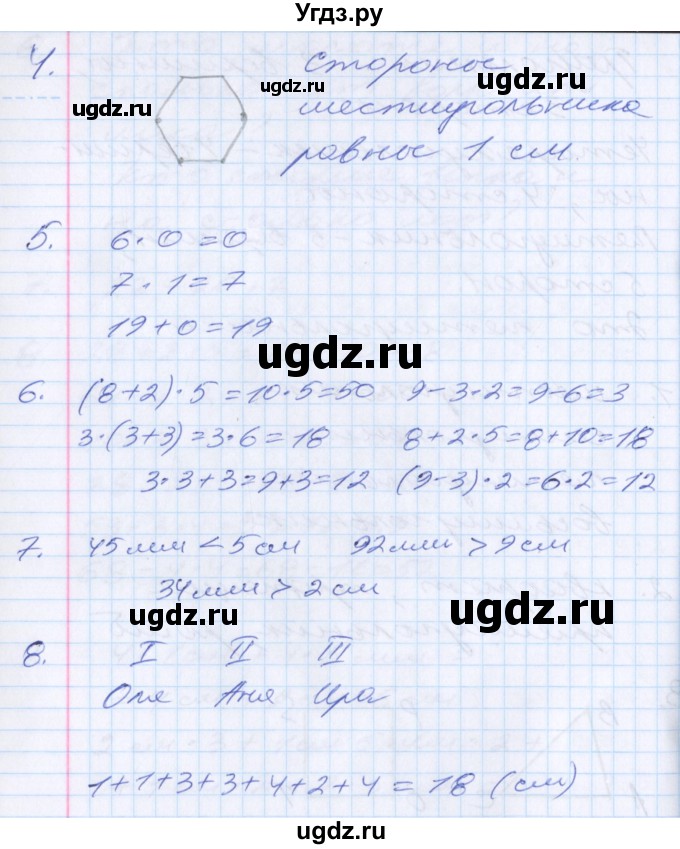 Угдз.ру
4. Стороны
шестиугольника
равны 1 см.
ugdz.ru ugdz.ru ugdz.ru
5. 6·0=0
7·1=7
19+0=19
ugdz.ru
6. (8+2)·5=10·5=50 9-3·2=9-6=3
3·(3+3)=3·6=18 8+2·5=8+10=18
3·3+3=9+3=12 (9-3)·2=6·2=12
7. 45мм<5см 92мм>9см
34мм>2см
ugdz.ru ugdz.ru
8. I II III
Оля Аня Ира
1+1+3+3+4+2+4=18 (см)
ugdz.ru ugdz.ru
ugdz.ru